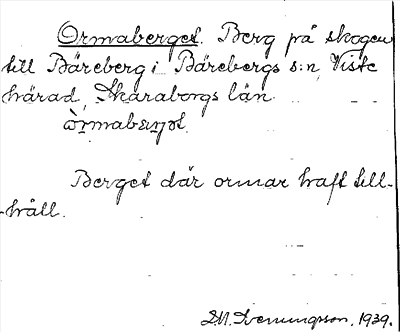 Ormaberget. Berg på skogen
till Bäreberg i Bärebergs s:n, Viste
härad, Skaraborgs län.
Berget där ormar haft till-
håll.
1939.